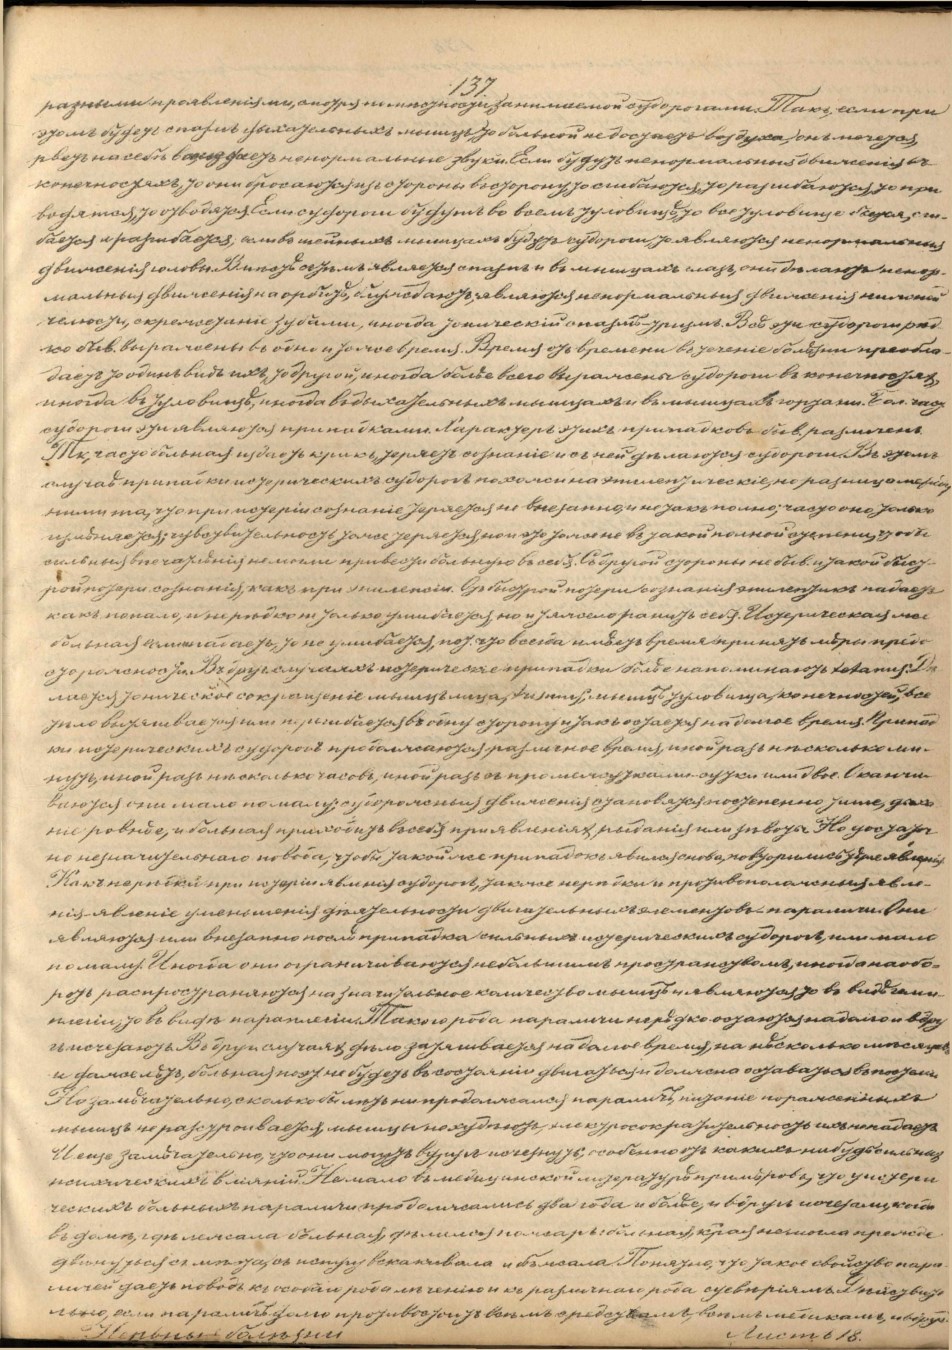 137.
разными проявленіями, смотря по мѣстности, занимаемой судорогами. Такъ, если при
этомъ будетъ спазмъ дыхательныхъ мышцъ, то больной не достаетъ воздуха, онъ мечется,
рветъ на себѣ, издаетъ ненормальные звуки. Если будутъ ненормальныя движенія въ
конечностяхъ, то они бросаются изъ стороны въ сторону, то сгибаются, то разгибаются, то при
водятся, то отводятся. Если судороги будутъ во всемъ туловищѣ, то все туловище бьется, сги-
бается и разгибается, если въ шейныхъ мышцахъ будутъ судороги, то являются ненормальныя
движенія головы. Иногда является спазмъ и въ мышцахъ глазъ, они дѣлаютъ ненор-
мальныя движенія на орбитѣ, являются ненормальныя движенія нижней
челюсти, скрежетаніе зубами, иногда тоническій спазмъ, тризмъ. Всѣ эти судороги рѣд
ко быв. выражены въ одно и тоже время. Время отъ времени въ теченіе болѣзни преобла-
даетъ то одинъ видъ ихъ, то другой, иногда болѣе всего выражены судороги въ конечностяхъ,
иногда въ туловищѣ, иногда въ дыхательныхъ мышцахъ и въ мышцахъ гортани. Бол. част.
судороги эти являются припадками. Характеръ этихъ припадковъ быв. различенъ.
Тк, часто больная издаетъ крикъ, теряетъ сознаніе и съ ней дѣлаются судороги. Въ этомъ
случаѣ припадки истерическихъ судорогъ похожи на эпилептическіе, но разница между
ними та, что при истеріи сознаніе теряется не внезапно и не такъ полно; часто оно только
измѣняется; чувствительность тоже теряется, но и это тоже не въ такой полной степени, чтобъ
сильныя впечатлѣнія не могли привести больную въ себя. Съ другой стороны не быв. и такой быст-
рой потери сознанія, какъ при эпилепсіи. Отъ быстрой потери сознанія эпилептикъ падаетъ
какъ попало, и нерѣдко не только ушибается, но и тяжело ранитъ себя. Истерическая же
больная если и падаетъ, то не ушибается, пот. что всегда имѣетъ время принять мѣры предо
сторожности. Въ друг. случаяхъ истерическіе припадки болѣе напоминаютъ tetanus. Дѣ
лается тоническое сокращеніе мышцъ лица, мышцъ туловища, конечностей, все
тѣло вытягивается или пригибается въ одну сторону и такъ остается на долгое время. Припад
ки истерическихъ судорогъ продолжаются различное время, иной разъ нѣсколько ми-
нутъ, иной разъ нѣсколько часовъ, иной разъ съ промежутками сутки или двое. Оканчи
ваются они мало по малу; судорожныя движенія становятся постепенно тише,
ніе ровнѣе, и больная приходитъ въ себя при явленіяхъ рыданія или зѣвоты. Но достаточ
но незначительнаго повода, чтобы такой же припадокъ явился снова, повторились тѣже явленія.
Какъ нерѣдки при истеріи явленія судорогъ, также нерѣдки и противоположныя явле-
нія – явленіе уменьшенія дѣятельности двигательныхъ элементовъ – параличи. Они
являются или внезапно послѣ припадка сильныхъ истерическихъ судорогъ, или мало
по малу. Иногда они ограничиваются небольшимъ пространствомъ, иногда наобо-
ротъ распространяются на значительное количество мышцъ и являются то въ видѣ геми-
плегіи, то въ видѣ параплегіи. Такого рода параличи нерѣдко остаются надолго и вдру
гъ исчезаютъ. Въ друг. случаяхъ дѣло затягивается на долгое время, на нѣсколько мѣсяцевъ
и даже лѣтъ, больная не будетъ въ состояніи двигаться и должна оставаться въ постели.
Но замѣчательно, сколько бы лѣтъ ни продолжался параличъ, питаніе пораженныхъ
мышцъ не разстроивается, мышцы не худѣютъ, электросократительность ихъ не падаетъ.
И еще замѣчательно, что они могутъ вдругъ исчезнуть, особенно отъ какихъ нибудь сильныхъ
психическихъ вліяній. Не мало въ медицинской литературѣ примѣровъ, что у истери
ческихъ больныхъ параличи продолжались два года и болѣе, и вдругъ исчезали, когда
въ домѣ, гдѣ лежала больная, дѣлался пожаръ: больная, котрая не могла прежде
двинуться съ мѣста, съ испугу вскакивала и бѣжала. Понятно, что такое свойство пара-
личей даетъ поводъ къ особаго рода лѣченію и къ различнаго рода суевѣріямъ. Дѣйствите
льно, если параличъ долго противостоитъ всѣмъ средствамъ, и вдругъ
Нервныя болѣзни Листъ 18.